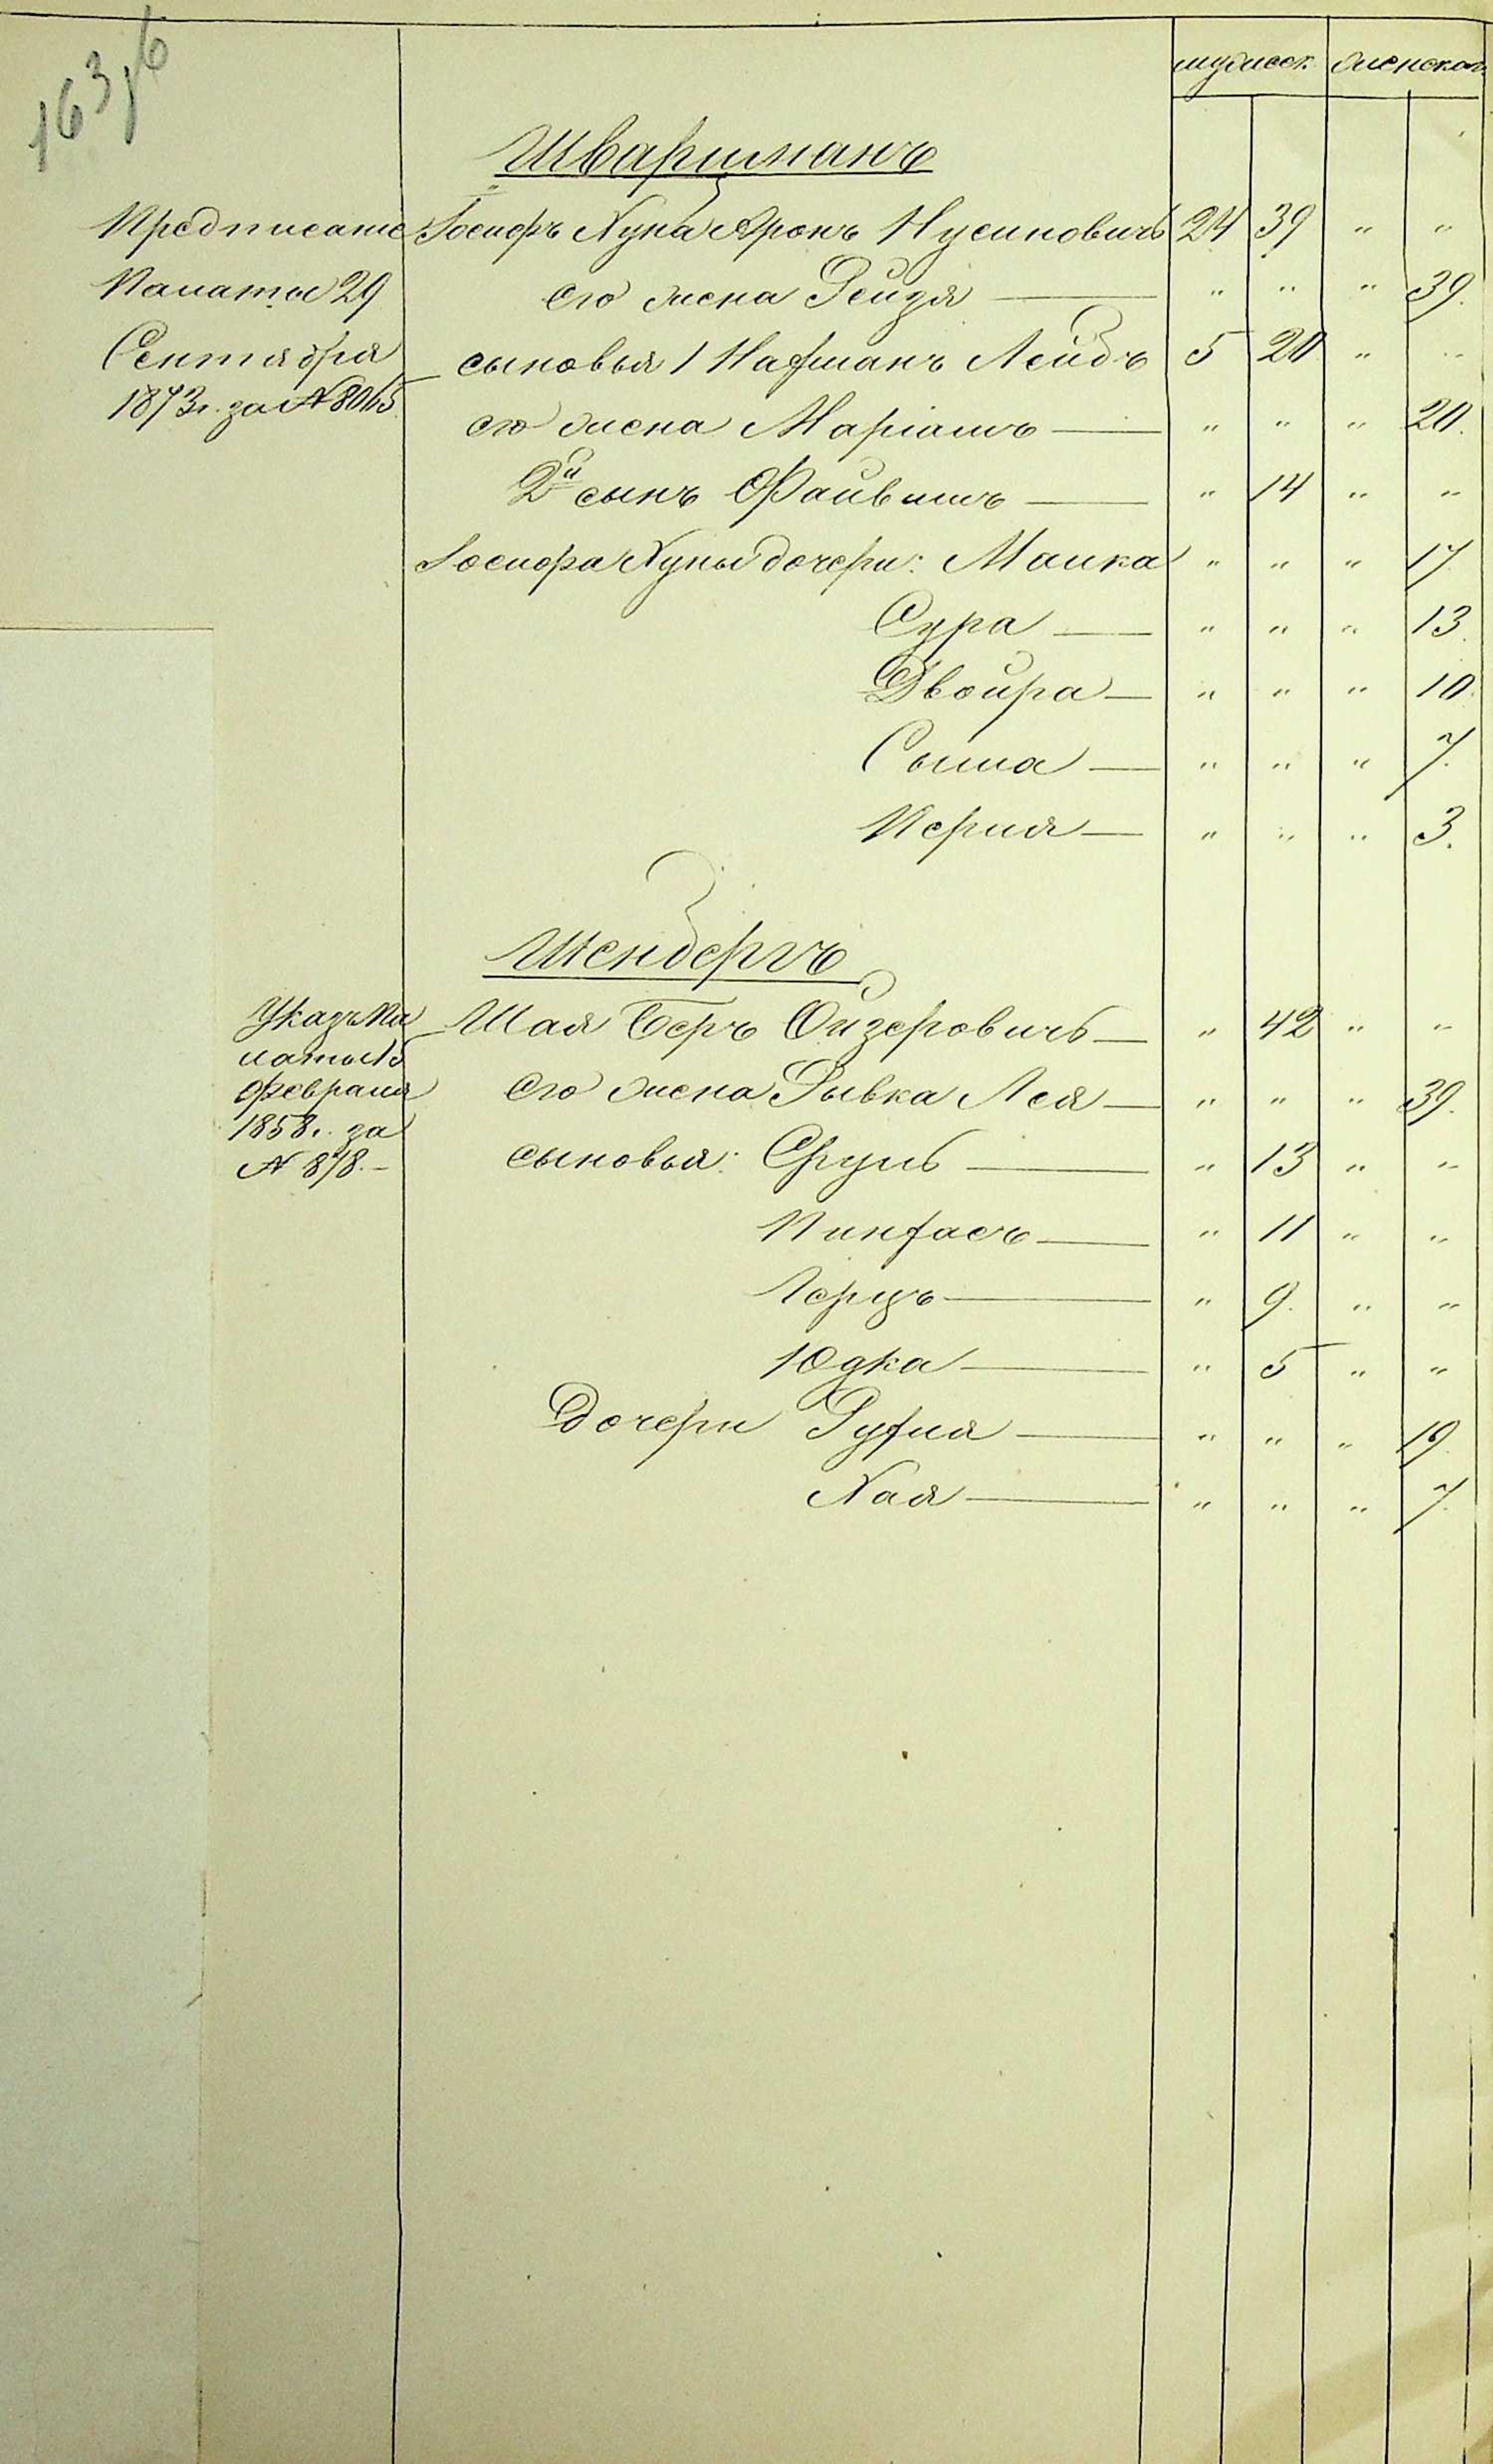 163 об
мужеск. женскаго
Шварцманъ
Предписаніе Іосифъ Хуна Аронъ Нусиновичъ 24 39 " "
Палаты 29 его жена Рейзя — " " " 39.
Сентября сыновья 1 Нахманъ Лейбъ 5 20 " "
1873 г. за № 8065 его жена Маріамъ — " " " 20.
2й сынъ Файвишъ — " 14 " "
Іосифа Хуны дочери: Малка " " " 17
Сура — " " " 13.
Двойра — " " " 10.
Сыма — " " " 7.
Перля — " " " 3.
Шенбергъ
Указъ Па Шая Беръ Ойзеровичъ — " 42 " "
латы 15
Февраля его жена Рывка Лея — " " " 39.
1858 г. за
№ 878. — сыновья: Сруль — " 13 " "
Пинхасъ — " 11 " "
Герцъ — " 9. " "
Юдка — " 5 " "
Дочери Рухля — " " " 19.
Хая — " " " 7.